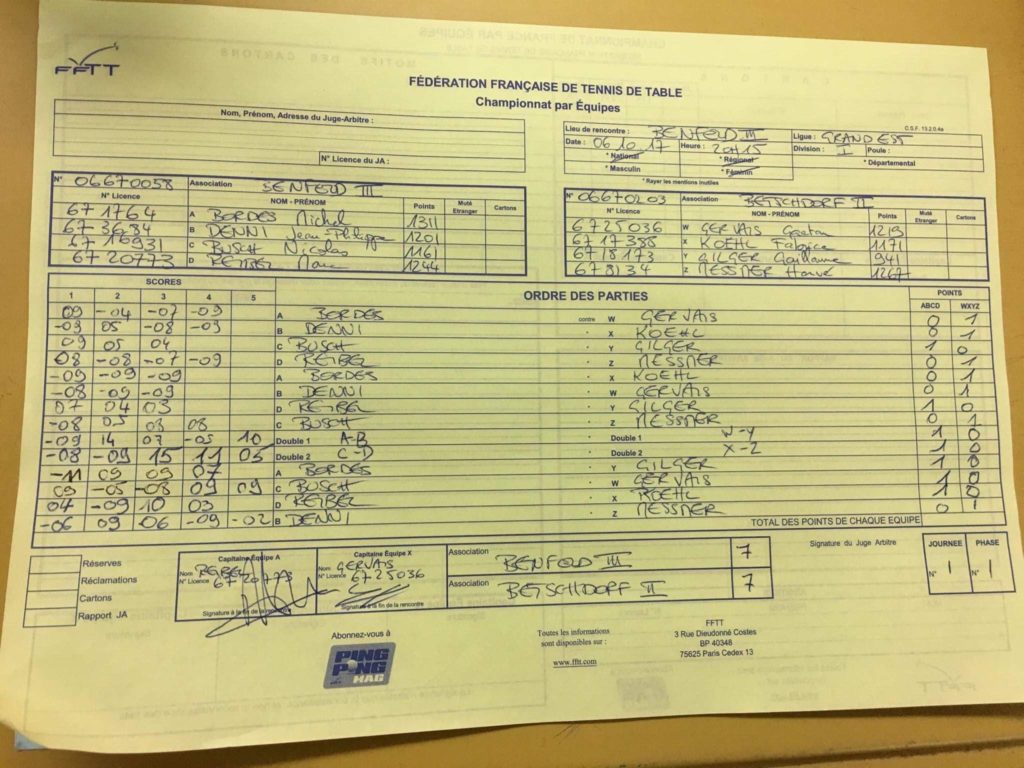 FFTT
FÉDÉRATION FRANÇAISE DE TENNIS DE TABLE
Championnat par Équipes
C.S.F. 13.2.0.4a
Nom, Prénom, Adresse du Juge-Arbitre :
N° Licence du JA :
Lieu de rencontre : BENFELD III Ligue : GRAND EST
Date : 06 10 17 Heure : 20H15 Division : I Poule :
* National * Régional * Départemental
* Masculin * Féminin
* Rayer les mentions inutiles
N° 06670058 Association BENFELD III
N° Licence NOM - PRÉNOM Points Muté Etranger Cartons
671764 A BORDES Michel 1311
673684 B DENNI Jean-Philippe 1201
6716931 C BUSCH Nicolas 1161
6720773 D REIBEL Marc 1244
N° 06670203 Association BETSCHDORF II
N° Licence NOM - PRÉNOM Points Muté Etranger Cartons
6725036 W GERVAIS Gaetan 1219
6717385 X KOEHL Fabrice 1171
6718173 Y GILGER Guillaume 941
678134 Z MESSNER Hervé 1267
SCORES ORDRE DES PARTIES POINTS
1 2 3 4 5 ABCD WXYZ
09 -04 -07 -09 A BORDES contre W GERVAIS 0 1
-09 05 -08 -09 B DENNI X KOEHL 0 1
09 05 04 C BUSCH Y GILGER 1 0
08 -08 -07 -09 D REIBEL Z MESSNER 0 1
-09 -09 -09 A BORDES X KOEHL 0 1
-08 -09 -09 B DENNI W GERVAIS 0 1
07 04 03 D REIBEL Y GILGER 1 0
-08 05 03 08 C BUSCH Z MESSNER 0 1
-09 14 07 -05 10 Double 1 A-B Double 1 W-Y 1 0
-08 -09 15 11 05 Double 2 C-D Double 2 X-Z 1 0
-11 09 09 07 A BORDES Y GILGER 1 0
09 -05 -08 09 09 C BUSCH W GERVAIS 1 0
04 -09 10 03 D REIBEL X KOEHL 1 0
-06 09 06 -09 -02 B DENNI Z MESSNER 0 1
TOTAL DES POINTS DE CHAQUE EQUIPE
Réserves
Réclamations
Cartons
Rapport JA
Capitaine Équipe A
Nom REIBEL
N° Licence 6720773
Signature à la fin de la rencontre
Capitaine Équipe X
Nom GERVAIS
N° Licence 6725036
Signature à la fin de la rencontre
Association BENFELD III 7
Association BETSCHDORF II 7
Signature du Juge Arbitre
JOURNEE PHASE
N° 1 N° 1
Abonnez-vous à
PING PONG MAG
Toutes les informations
sont disponibles sur :
www.fftt.com
FFTT
3 Rue Dieudonné Costes
BP 40348
75625 Paris Cedex 13